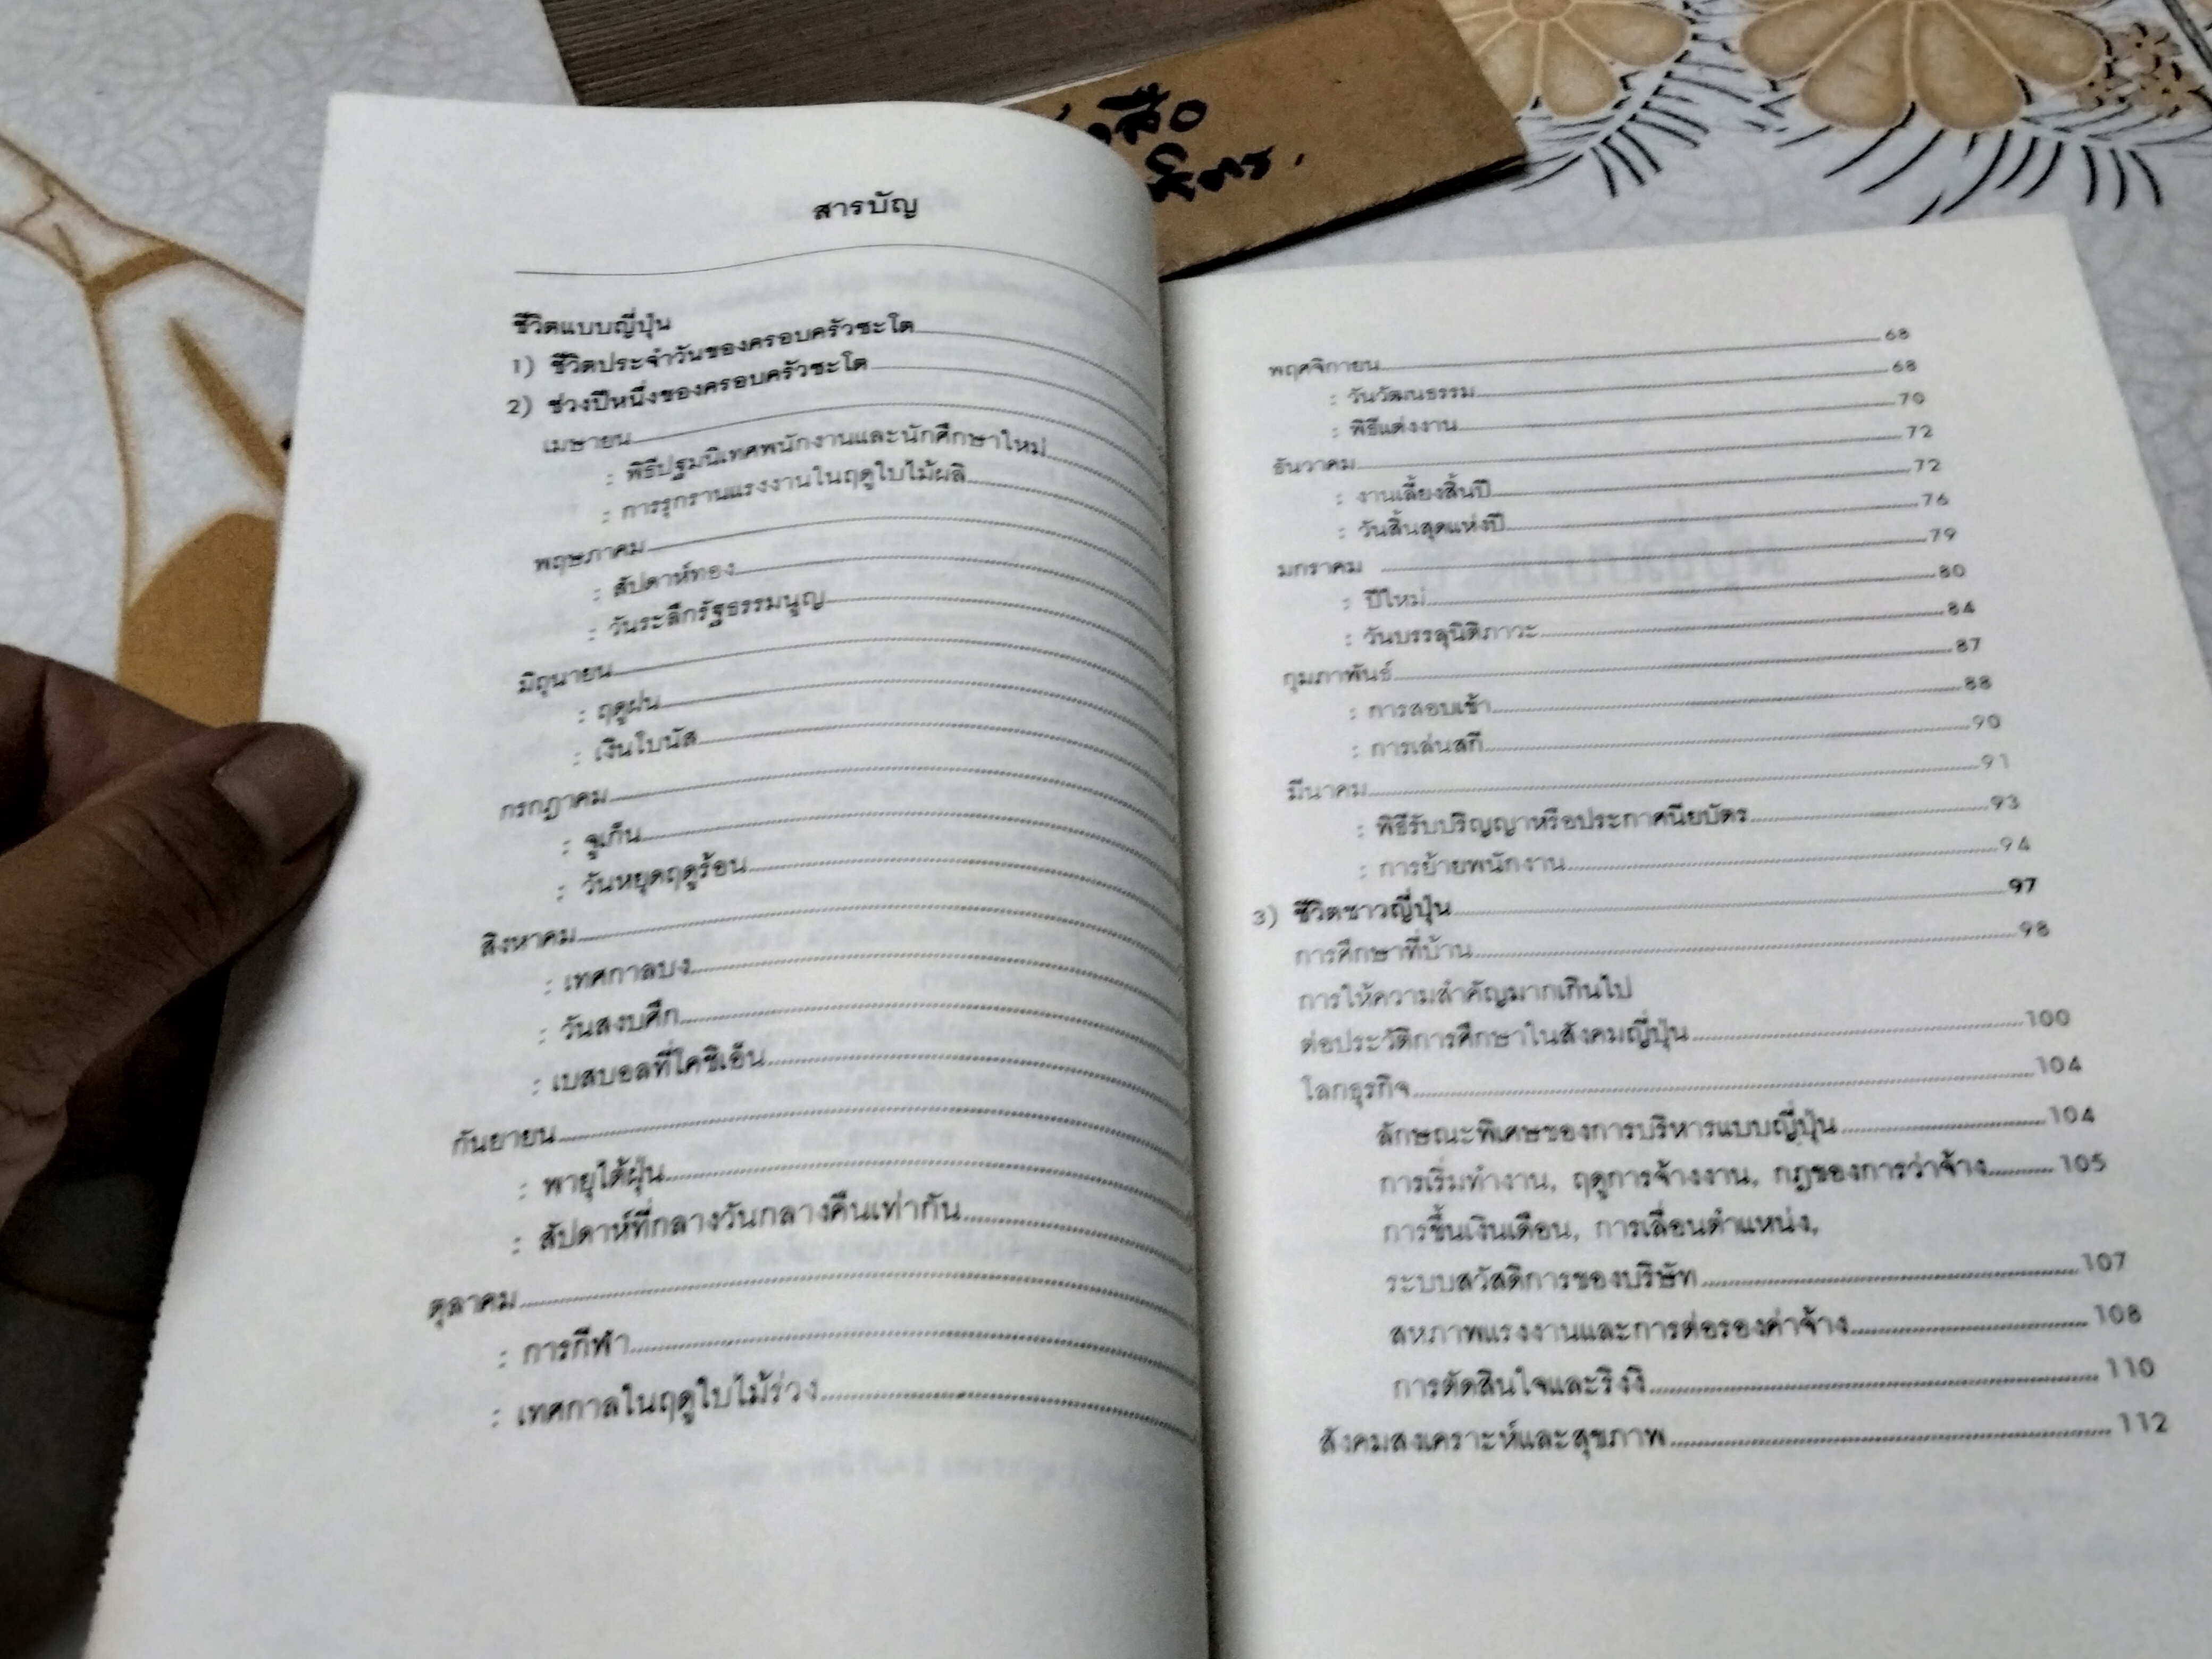 สารบัญ
ชีวิตแบบญี่ปุ่น
1) ชีวิตประจำวันของครอบครัวซะโต
2) ช่วงปีหนึ่งของครอบครัวซะโต
เมษายน
: พิธีปฐมนิเทศพนักงานและนักศึกษาใหม่
: การรุกรานแรงงานในฤดูใบไม้ผลิ
พฤษภาคม
: สัปดาห์ทอง
: วันระลึกรัฐธรรมนูญ
มิถุนายน
: ฤดูฝน
: เงินโบนัส
กรกฎาคม
: จูเก็น
: วันหยุดฤดูร้อน
สิงหาคม
: เทศกาลบง
: วันสงบศึก
: เบสบอลที่โคชิเอ็น
กันยายน
: พายุไต้ฝุ่น
: สัปดาห์ที่กลางวันกลางคืนเท่ากัน
ตุลาคม
: การกีฬา
: เทศกาลในฤดูใบไม้ร่วง
พฤศจิกายน 68
: วันวัฒนธรรม 68
: พิธีแต่งงาน 70
ธันวาคม 72
: งานเลี้ยงสิ้นปี 72
: วันสิ้นสุดแห่งปี 76
มกราคม 79
: ปีใหม่ 80
: วันบรรลุนิติภาวะ 84
กุมภาพันธ์ 87
: การสอบเข้า 88
: การเล่นสกี 90
มีนาคม 91
: พิธีรับปริญญาหรือประกาศนียบัตร 93
: การย้ายพนักงาน 94
3) ชีวิตชาวญี่ปุ่น 97
การศึกษาที่บ้าน 98
การให้ความสำคัญมากเกินไป
ต่อประวัติการศึกษาในสังคมญี่ปุ่น 100
โลกธุรกิจ 104
ลักษณะพิเศษของการบริหารแบบญี่ปุ่น 104
การเริ่มทำงาน, ฤดูการจ้างงาน, กฎของการว่าจ้าง 105
การขึ้นเงินเดือน, การเลื่อนตำแหน่ง,
ระบบสวัสดิการของบริษัท 107
สหภาพแรงงานและการต่อรองค่าจ้าง 108
การตัดสินใจและริงงิ 110
สังคมสงเคราะห์และสุขภาพ 112